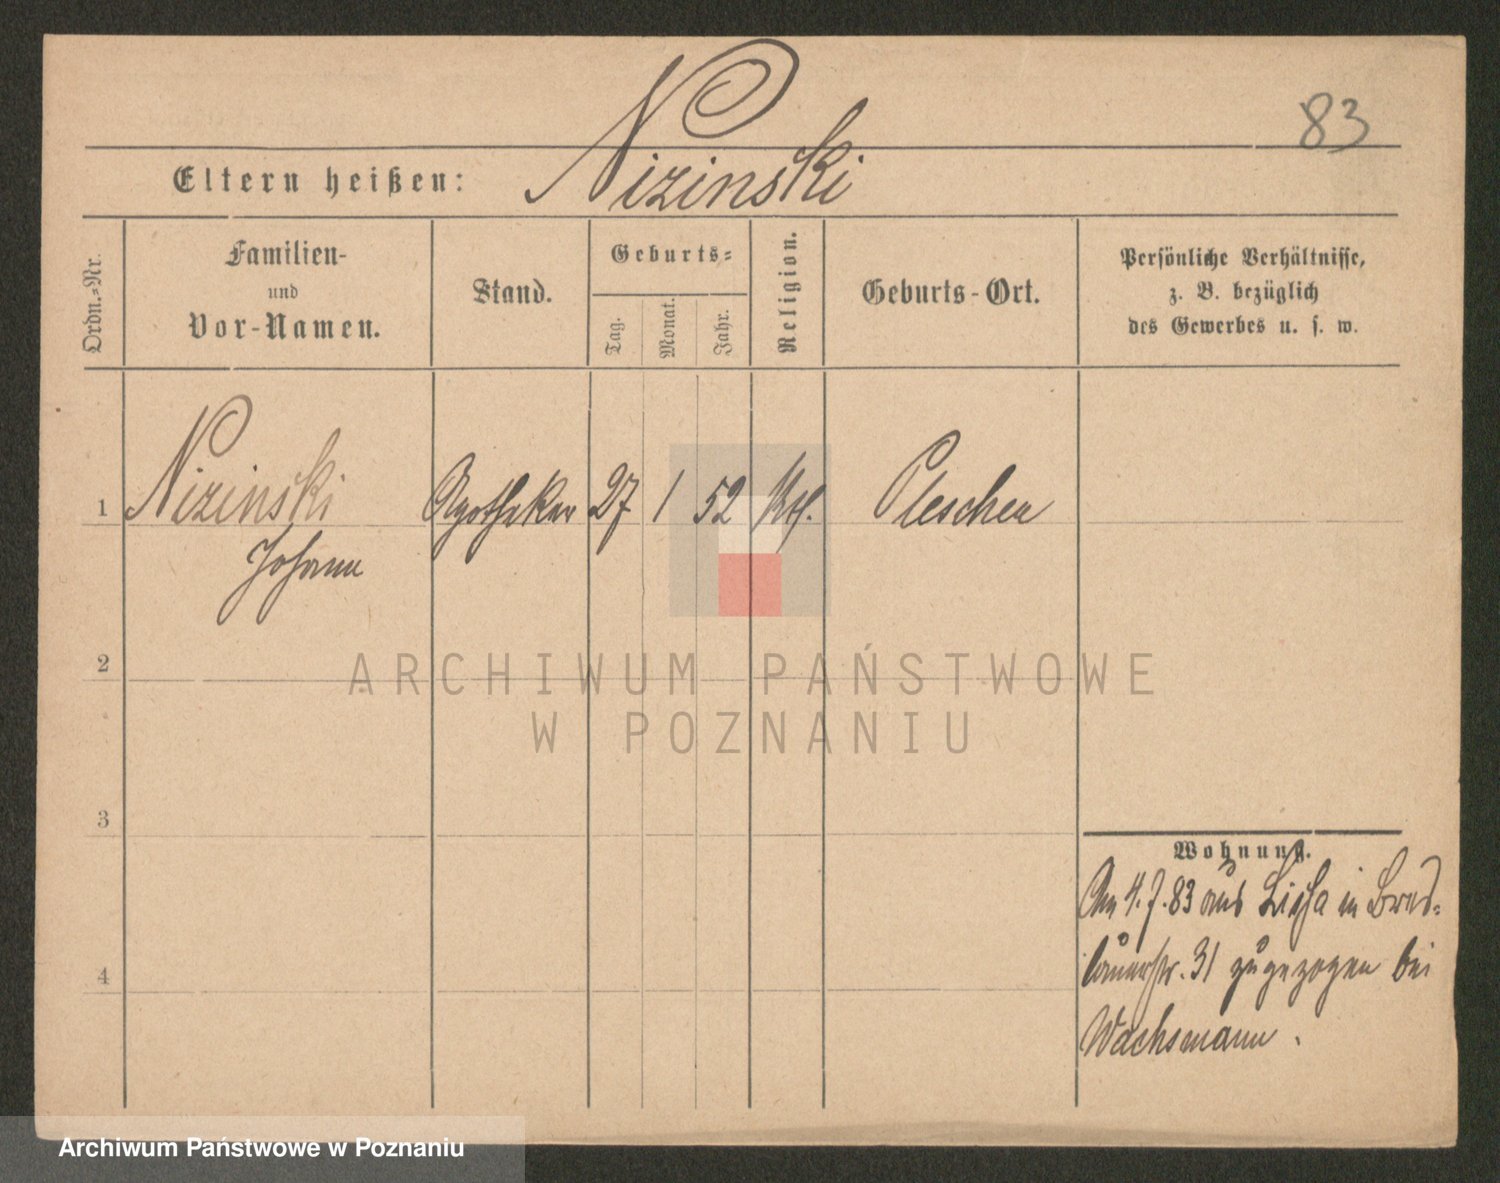 Nizinski
83
Eltern heißen:
Ordn.=Nr.
Familien-
und
Vor-Namen.
Stand.
Geburts=
Tag.
Monat.
Jahr.
Religion.
Geburts-Ort.
Persönliche Verhältnisse,
z. B. bezüglich
des Gewerbes u. s. w.
1 Nizinski Apotheker 27 1 52 Kth. Pleschen
Johann
2
ARCHIWUM PAŃSTWOWE
W POZNANIU
3
Wohnung.
Am 4.7.83 aus Lissa in Bres=
lauerstr. 31 zugezogen bei
4
Wachsmann.
Archiwum Państwowe w Poznaniu